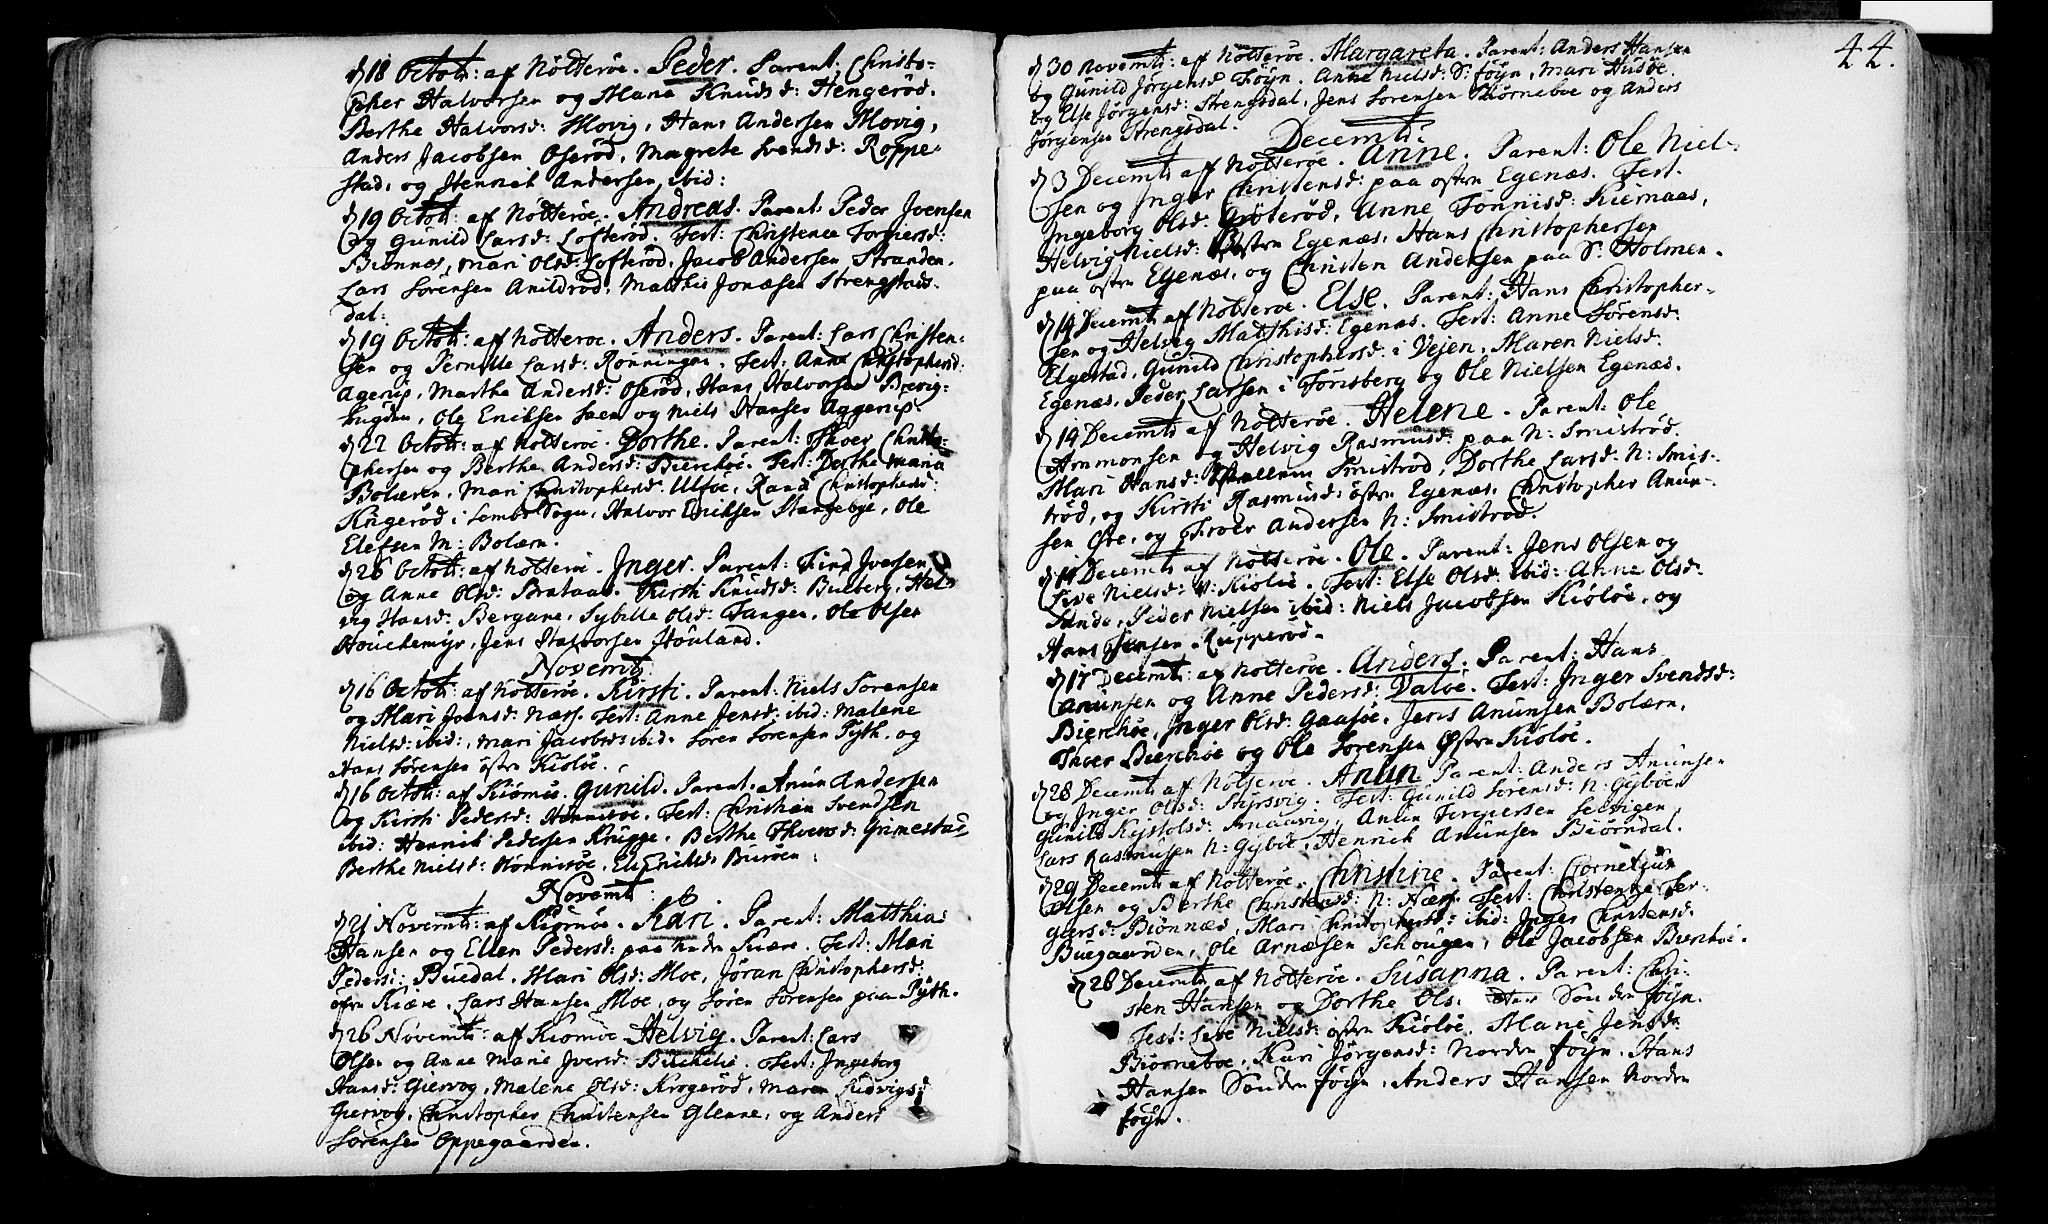 d 18 Octob: af Nötteröe. Peder. Parent: Christo-
pher Halvorsen og Mana Knudsd: Hengeröd.
Berthe Halvorsd: Hovig, Hans Andersen Hovig,
Anders Jacobsen Oseröd, Magrete Svendsd: Roppe-
stad, og Henrich Andersen ibid:
d 19 Octob: af Nötteröe. Andreas. Parent: Peder Joensen
og Gunild Larsd: Lofteröd. Test: Christence Torgiersd:
Biönnes, Mari Olsd: Lofteröd, Jacob Andersen Stranden.
Lars Sörensen Anildröd, Matthis Jonæsen Strengstads-
dal:
d 19 Octob: af Nötteröe. Anders. Parent: Lars Christen-
sen og Pernille Larsd: Rönningen. Test: Anne Christophersd:
Agerup, Marthe Andersd: Oseröd, Hans Halvorsen Brevig-
Ole Eriksen Saem og Niels Hansen Aggerup.
d 22 Octob: af Nötteröe. Dorthe. Parent: Thoer Christo-
phersen og Berthe Andersd: Bierchöe. Test: Dorthe Maria
Bolæren, Mari Christophersd: Ulföe, Rand Christophersd:
Ringeröd i Sembs Sogn, Halvor Eriksen Stangebye, Ole
Elefsen M: Bolærn.
d 26 Octob: af Nötteröe. Inger. Parent: Find Jversen
og Anne Olsd: Brataas. Kirsti Knudsd: Bueberg, Hel-
vig Hansd: Bergane, Sybille Olsd: Tangen, Ole Olsen
Houchemyr, Jens Halvorsen Houland.
Novemb
d 16 Octob: af Nötteröe. Kirsti. Parent: Niels Sörensen
og Mari Joensd: Næss. Test: Anne Jensd: ibid: Malene
Nielsd: ibid:, Mari Jacobsd: ibid: Sören Sörensen Pyth, og
Hans Sörensen östre Kiölöe.
d 16 Octob: af Kiömöe. Gunild. Parent: Anun Andersen
og Kirsti Pedersd: Hönnisöe. Test: Christian Svendsen
ibid: Henrich Pedersen Krugge. Berthe Thoersd: Grimestad
Berthe Nielsd: Hönnisöe, Buröen:
Novemb:
d 21 Novemb: af Kiömöe. Kari. Parent: Matthias
Hansen og Ellen Pedersd: paa nedre Kiære. Test: Mari
Pedersd: Buedal. Mari Olsd: Moe, Jöran Christophersd:
öfre Kiære. Lars Hansen Moe, og Sören Sörensen paa Pyth.
d 26 Novemb: af Kiömöe Helvig. Parent: Lars
Olsen og Anne Marie Jversd: Buchelie. Test: Ingeborg
Hansd: Giervog, Malene Olsd: Krogeröd, Maren Ludvigsd:
Giervog, Christopher Christensen Glenne, og Anders
Sörensen Oppegaarden.
44.
d 30 Novemb: af Nötteröe. Margareta. Parent: Anders Hansen
og Gunild Jörgensd: Föyn. Anne Nielsd: S: föyn, Mari Husöe.
og Else Jörgensd: Strengsdal, Jens Sörensen Biörneboe og Anders
Jörgensen Strengsdal.
Decemb:
d 3 Decemb: af Nötteröe. Anne. Parent: Ole Niel-
sen og Inger Christensd: paa östre Egenæs. Test.
Ingeborg Olsd: Gröteröd, Anne Tönnisd: Kiernaas,
Helvig Nielsd: östre Egenæs, Hans Christophersen
paa östre Egenæs, og Christen Andersen paa S: Holmen.
d 14 Decemb: af Nötteröe. Else. Parent: Hans Christopher-
sen og Helvig Matthisd: Egenæs. Test: Anne Sörensd:
Elgestad, Gunild Christophersd: i Vejen, Maren Nielsd:
Egenæs, Peder Larsen i Tönsberg og Ole Nielsen Egenæs.
d 14 Decemb: af Nötteröe. Helene. Parent: Ole
Ammonsen og Helvig Rasmusd: paa N: Smidsröd.
Mari Hansd: Mellum Smidsröd, Dorthe Larsd: N: Smis-
tröd, og Kirsti Rasmusd: östre Egenæs, Christopher Anun-
sen Öre, og Troer Andersen N: Smidsröd.
d 14 Decemb: af Nötteröe. Ole. Parent: Jens Olsen og
Live Nielsd: V: Kiölöe. Test: Else Olsd: ibid: Anne Olsd:
Sande, Peder Nielsen ibid: Niels Jacobsen Kiölöe, og
Hans Jensen Rupperöd.
d 17 Decemb: af Nötteröe. Anders. Parent: Hans
Anunsen og Anne Pedersd: Valöe. Test: Inger Svendsd:
Bierchöe, Inger Olsd: Gaasöe, Jens Anunsen Bolærn,
Thoer Bierchöe og Ole Sörensen Östre Kiölöe.
d 28 Decemb: af Nötteröe. Anun. Parent: Anders Anunsen
og Inger Olsd: Styrsvig. Test: Gunild Sörensd: N: Gyböe,
Gunild Kystolsd: Smaavig, Anun Torgiersen Selvigen,
Lars Rasmusen N: Gyböe, Henrich Anunsen Biörndal.
d 29 Decemb: af Nötteröe. Christine. Parent: Cornelius
Olsen og Berthe Christensd: N: Næss. Test: Christence Tor-
giersd: Biönnes, Mari Christophersd: ibid: Inger Christensd:
Buegaarden, Ole Arnæsen Schougen, Ole Jacobsen Bierchöe.
d 28 Decemb: af Nötteröe. Susanna. Parent: Chri-
sten Hansen og Dorthe Ols Sönden föyn.
Test: Live Nielsd: östre Kiölöe. Mari Jensd:
Biörneboe, Kari Jörgensd: Norden föyn. Hans
Hansen Sönden föyn, Anders Hansen Norden
föyn.